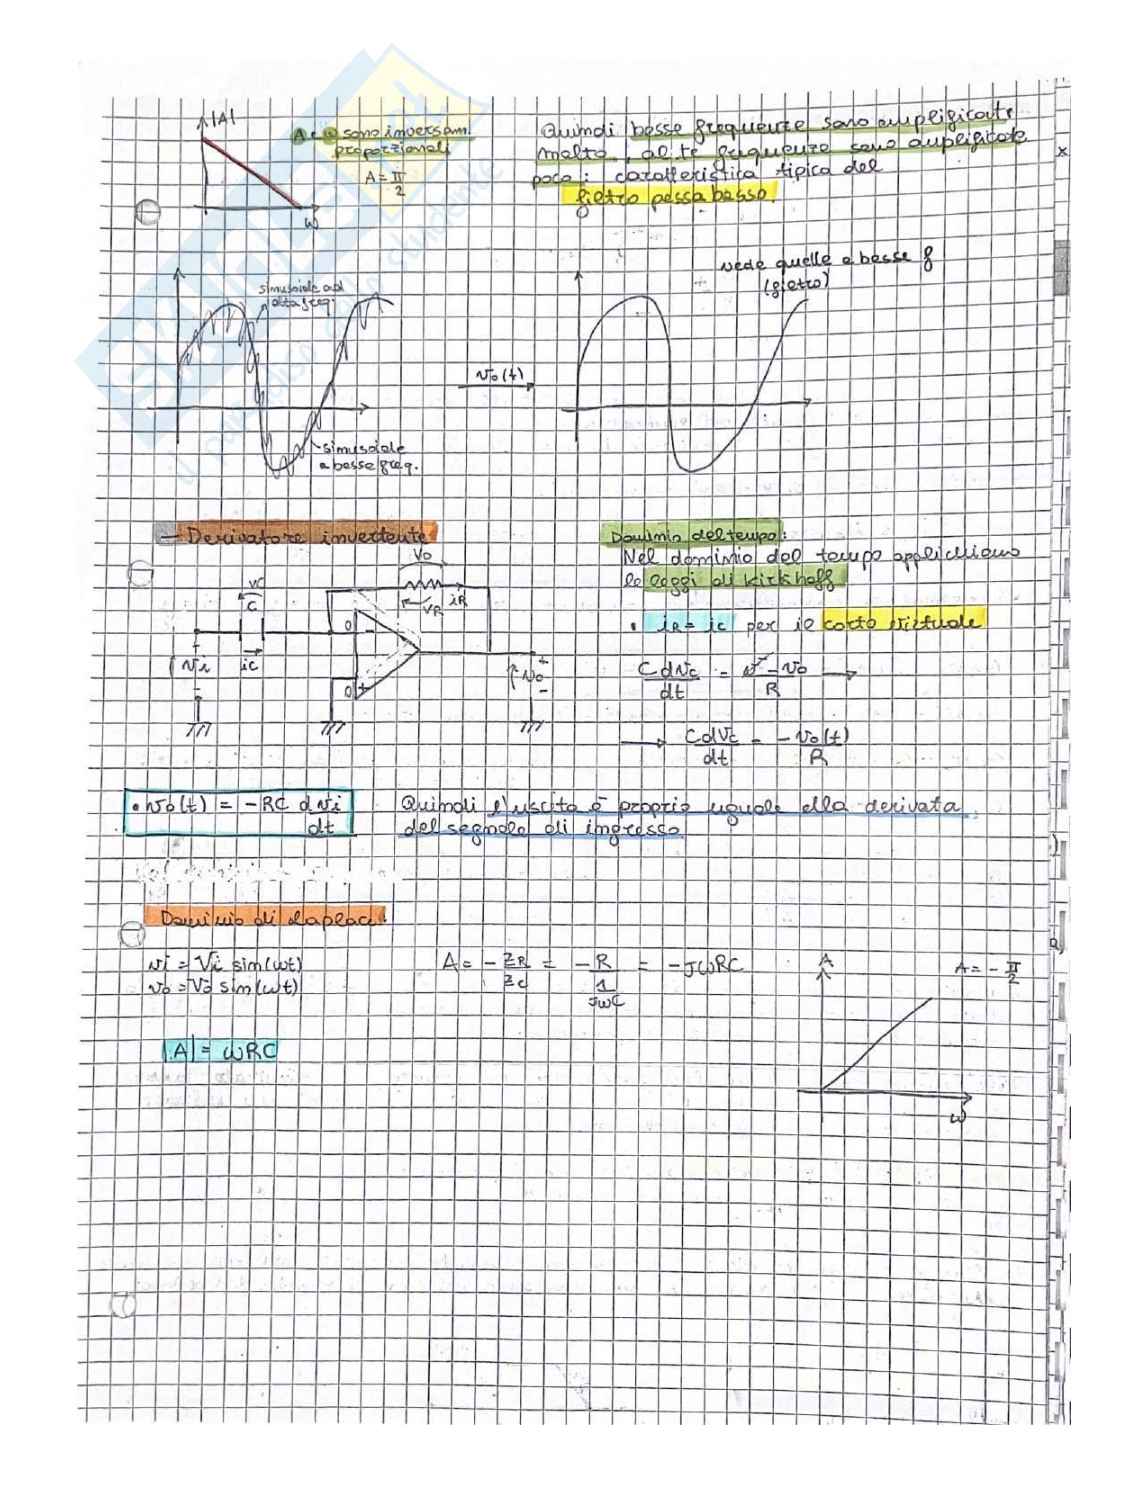 |A|
A e ω sono inversam.
proporzionali
A = π/2
ω
Quindi basse frequenze sono amplificate
molto, alte frequenze sono amplificate
poco: caratteristica tipica del
filtro passa basso.
sinusoide ad
alta freq.
sinusoide
a basse freq.
vo(t)
vede quelle a basse f
(filtro)
- Derivatore invertente
Vo
vc
C
VR
iR
ic
+
vi
-
0
-
0
+
+
vo
-
Dominio del tempo:
Nel dominio del tempo applichiamo
le leggi di Kirkhoff
• iR = ic per il corto virtuale
C dvc/dt = v⁻ - vo/R →
→ C dvc/dt = -vo(t)/R
• vo(t) = -RC dvi/dt
Quindi l'uscita è proprio uguale alla derivata
del segnale di ingresso
Dominio di Laplace:
vi = Vi sin(ωt)
vo = Vo sin(ωt)
A = - ZR/Zc = -R/(1/JωC) = -JωRC
|A| = ωRC
A
A = - π/2
ω